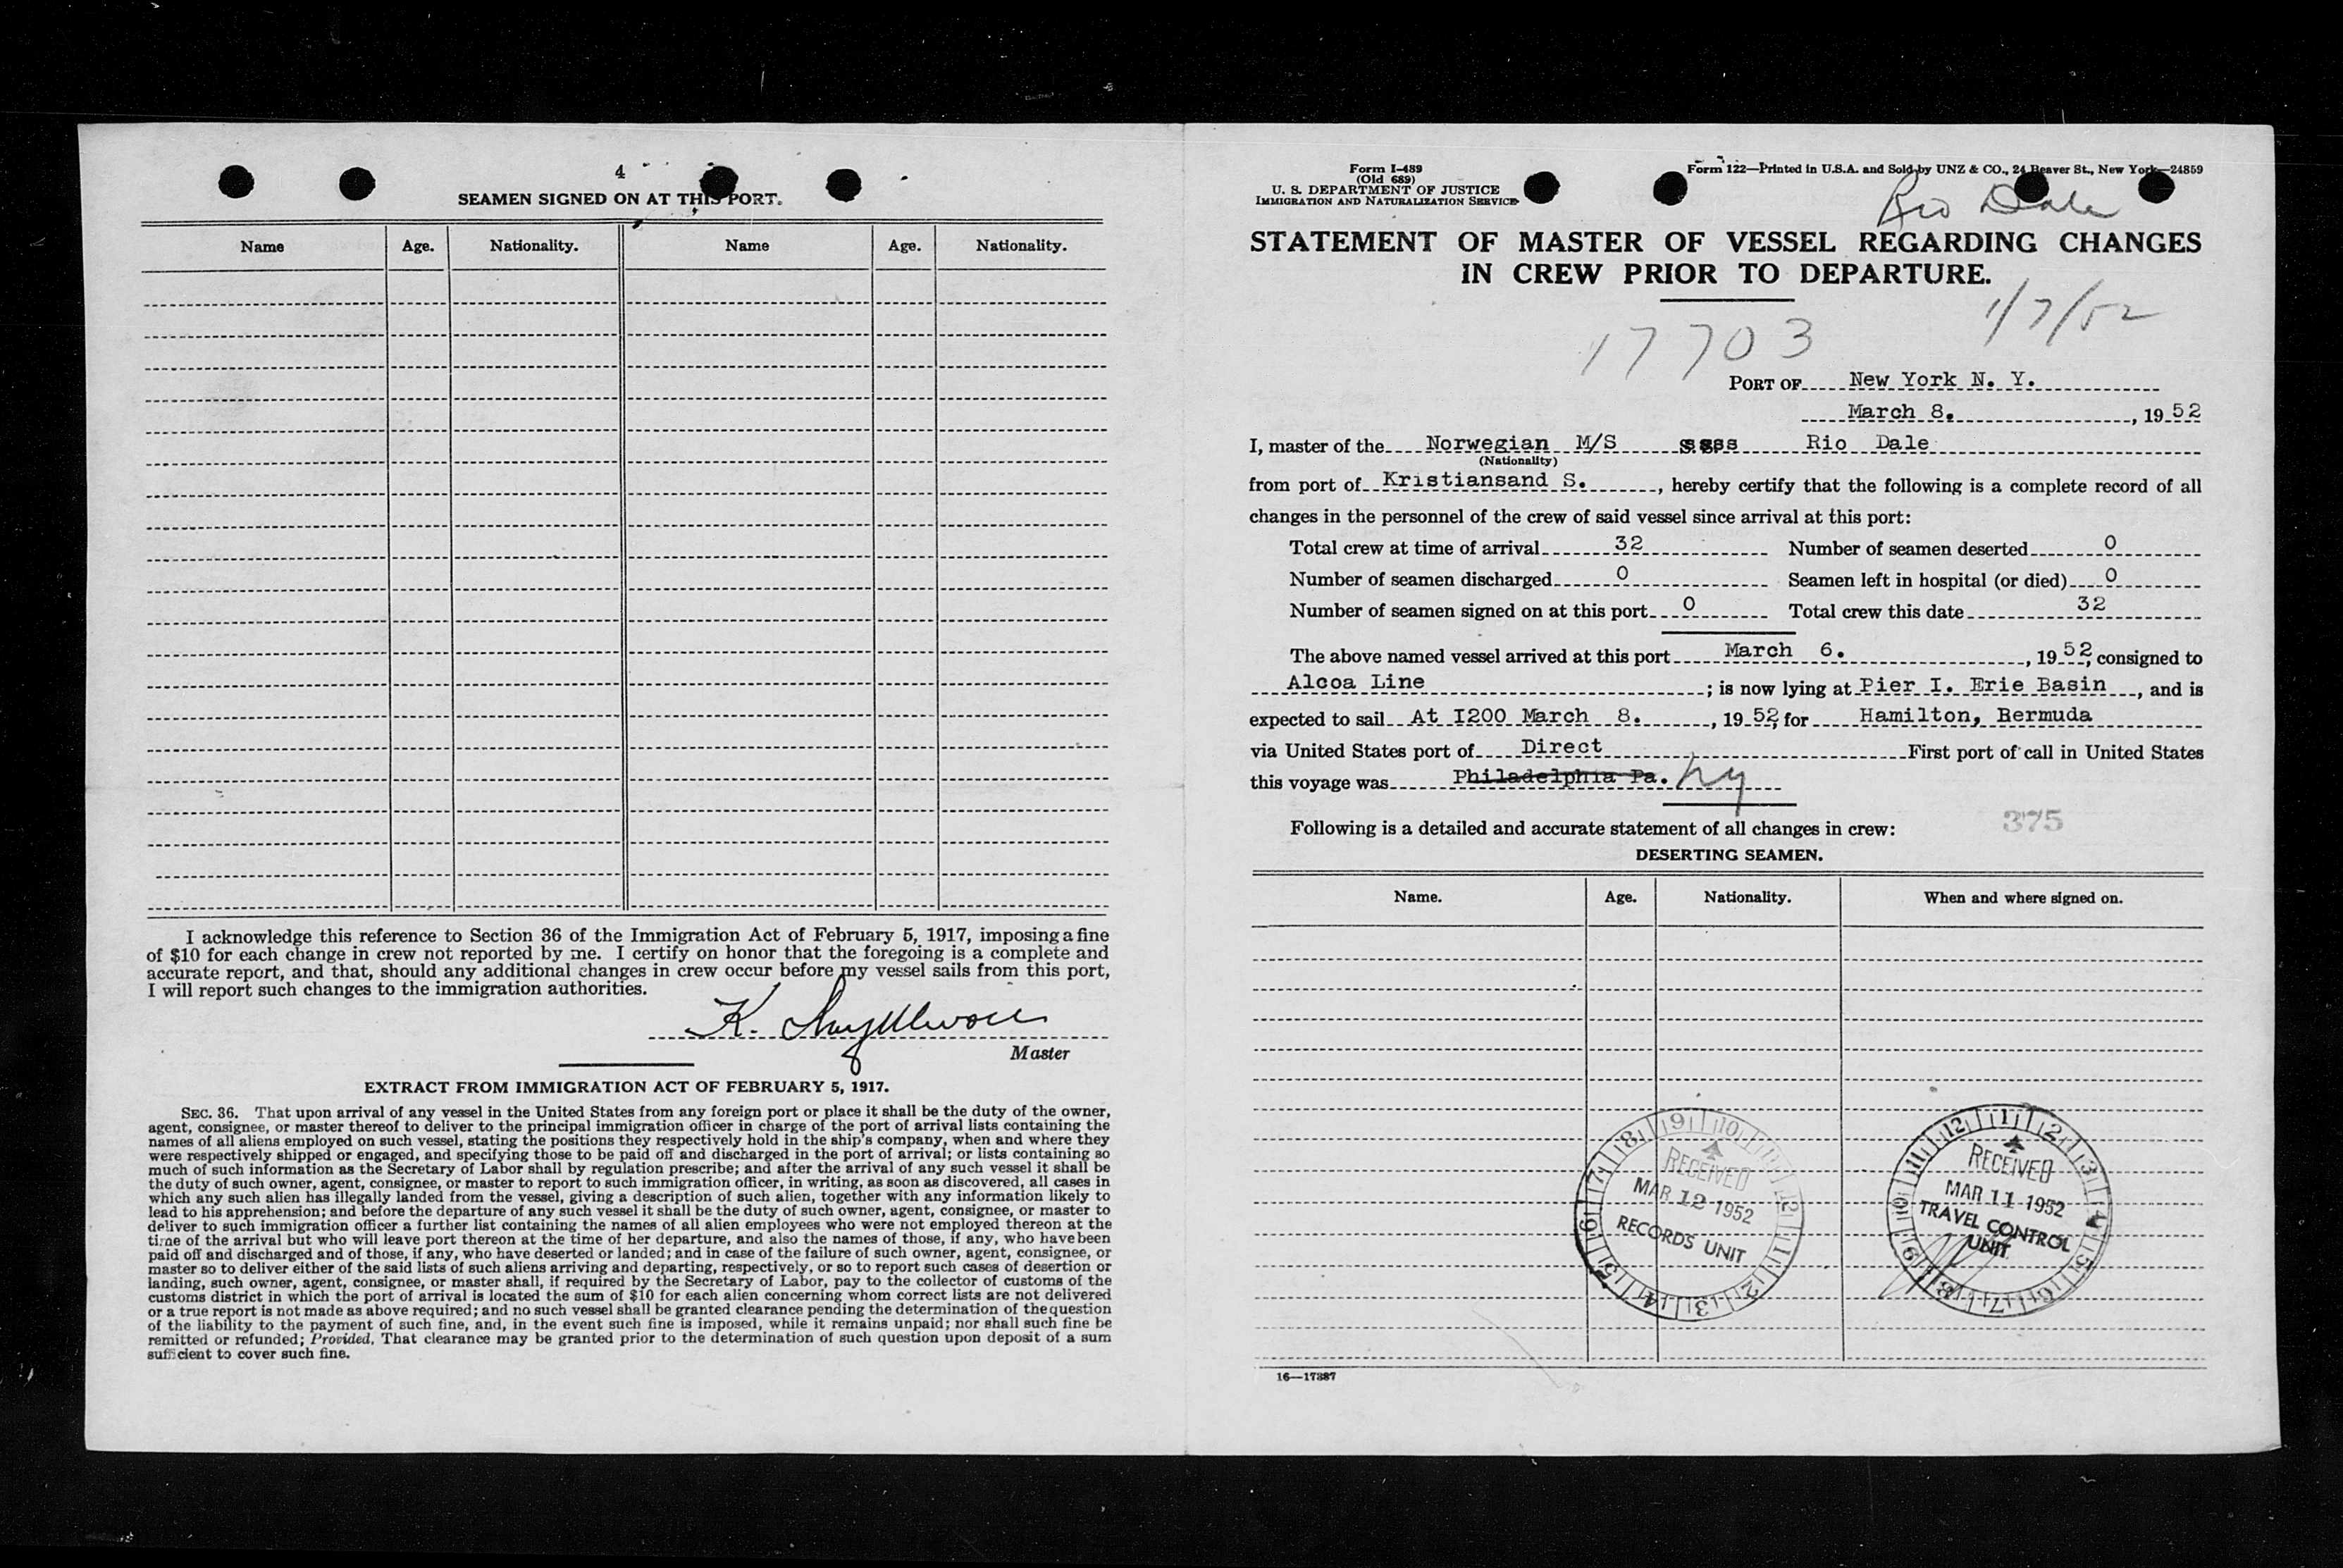 4
SEAMEN SIGNED ON AT THIS PORT.
Name Age. Nationality. Name Age. Nationality.
I acknowledge this reference to Section 36 of the Immigration Act of February 5, 1917, imposing a fine
of $10 for each change in crew not reported by me. I certify on honor that the foregoing is a complete and
accurate report, and that, should any additional changes in crew occur before my vessel sails from this port,
I will report such changes to the immigration authorities.
K.
Master
EXTRACT FROM IMMIGRATION ACT OF FEBRUARY 5, 1917.
SEC. 36. That upon arrival of any vessel in the United States from any foreign port or place it shall be the duty of the owner,
agent, consignee, or master thereof to deliver to the principal immigration officer in charge of the port of arrival lists containing the
names of all aliens employed on such vessel, stating the positions they respectively hold in the ship's company, when and where they
were respectively shipped or engaged, and specifying those to be paid off and discharged in the port of arrival; or lists containing so
much of such information as the Secretary of Labor shall by regulation prescribe; and after the arrival of any such vessel it shall be
the duty of such owner, agent, consignee, or master to report to such immigration officer, in writing, as soon as discovered, all cases in
which any such alien has illegally landed from the vessel, giving a description of such alien, together with any information likely to
lead to his apprehension; and before the departure of any such vessel it shall be the duty of such owner, agent, consignee, or master to
deliver to such immigration officer a further list containing the names of all alien employees who were not employed thereon at the
time of the arrival but who will leave port thereon at the time of her departure, and also the names of those, if any, who have been
paid off and discharged and of those, if any, who have deserted or landed; and in case of the failure of such owner, agent, consignee, or
master so to deliver either of the said lists of such aliens arriving and departing, respectively, or so to report such cases of desertion or
landing, such owner, agent, consignee, or master shall, if required by the Secretary of Labor, pay to the collector of customs of the
customs district in which the port of arrival is located the sum of $10 for each alien concerning whom correct lists are not delivered
or a true report is not made as above required; and no such vessel shall be granted clearance pending the determination of the question
of the liability to the payment of such fine, and, in the event such fine is imposed, while it remains unpaid; nor shall such fine be
remitted or refunded; Provided, That clearance may be granted prior to the determination of such question upon deposit of a sum
sufficient to cover such fine.
Form I-489
(Old 689)
U. S. DEPARTMENT OF JUSTICE
IMMIGRATION AND NATURALIZATION SERVICE
Form 122—Printed in U.S.A. and Sold by UNZ & CO., 24 Beaver St., New York—24859
Rio Dale
STATEMENT OF MASTER OF VESSEL REGARDING CHANGES
IN CREW PRIOR TO DEPARTURE.
17703 1/7/52
PORT OF New York N. Y.
March 8. , 1952
I, master of the Norwegian M/S Rio Dale
(Nationality)
from port of Kristiansand S. , hereby certify that the following is a complete record of all
changes in the personnel of the crew of said vessel since arrival at this port:
Total crew at time of arrival 32 Number of seamen deserted 0
Number of seamen discharged 0 Seamen left in hospital (or died) 0
Number of seamen signed on at this port 0 Total crew this date 32
The above named vessel arrived at this port March 6. , 1952, consigned to
Alcoa Line ; is now lying at Pier I. Erie Basin , and is
expected to sail At I200 March 8. , 1952, for Hamilton, Bermuda
via United States port of Direct First port of call in United States
this voyage was Philadelphia Pa. ny
Following is a detailed and accurate statement of all changes in crew: 375
DESERTING SEAMEN.
Name. Age. Nationality. When and where signed on.
RECEIVED
MAR 12 1952
RECORDS UNIT
RECEIVED
MAR 11 1952
TRAVEL CONTROL
UNIT
16—17387